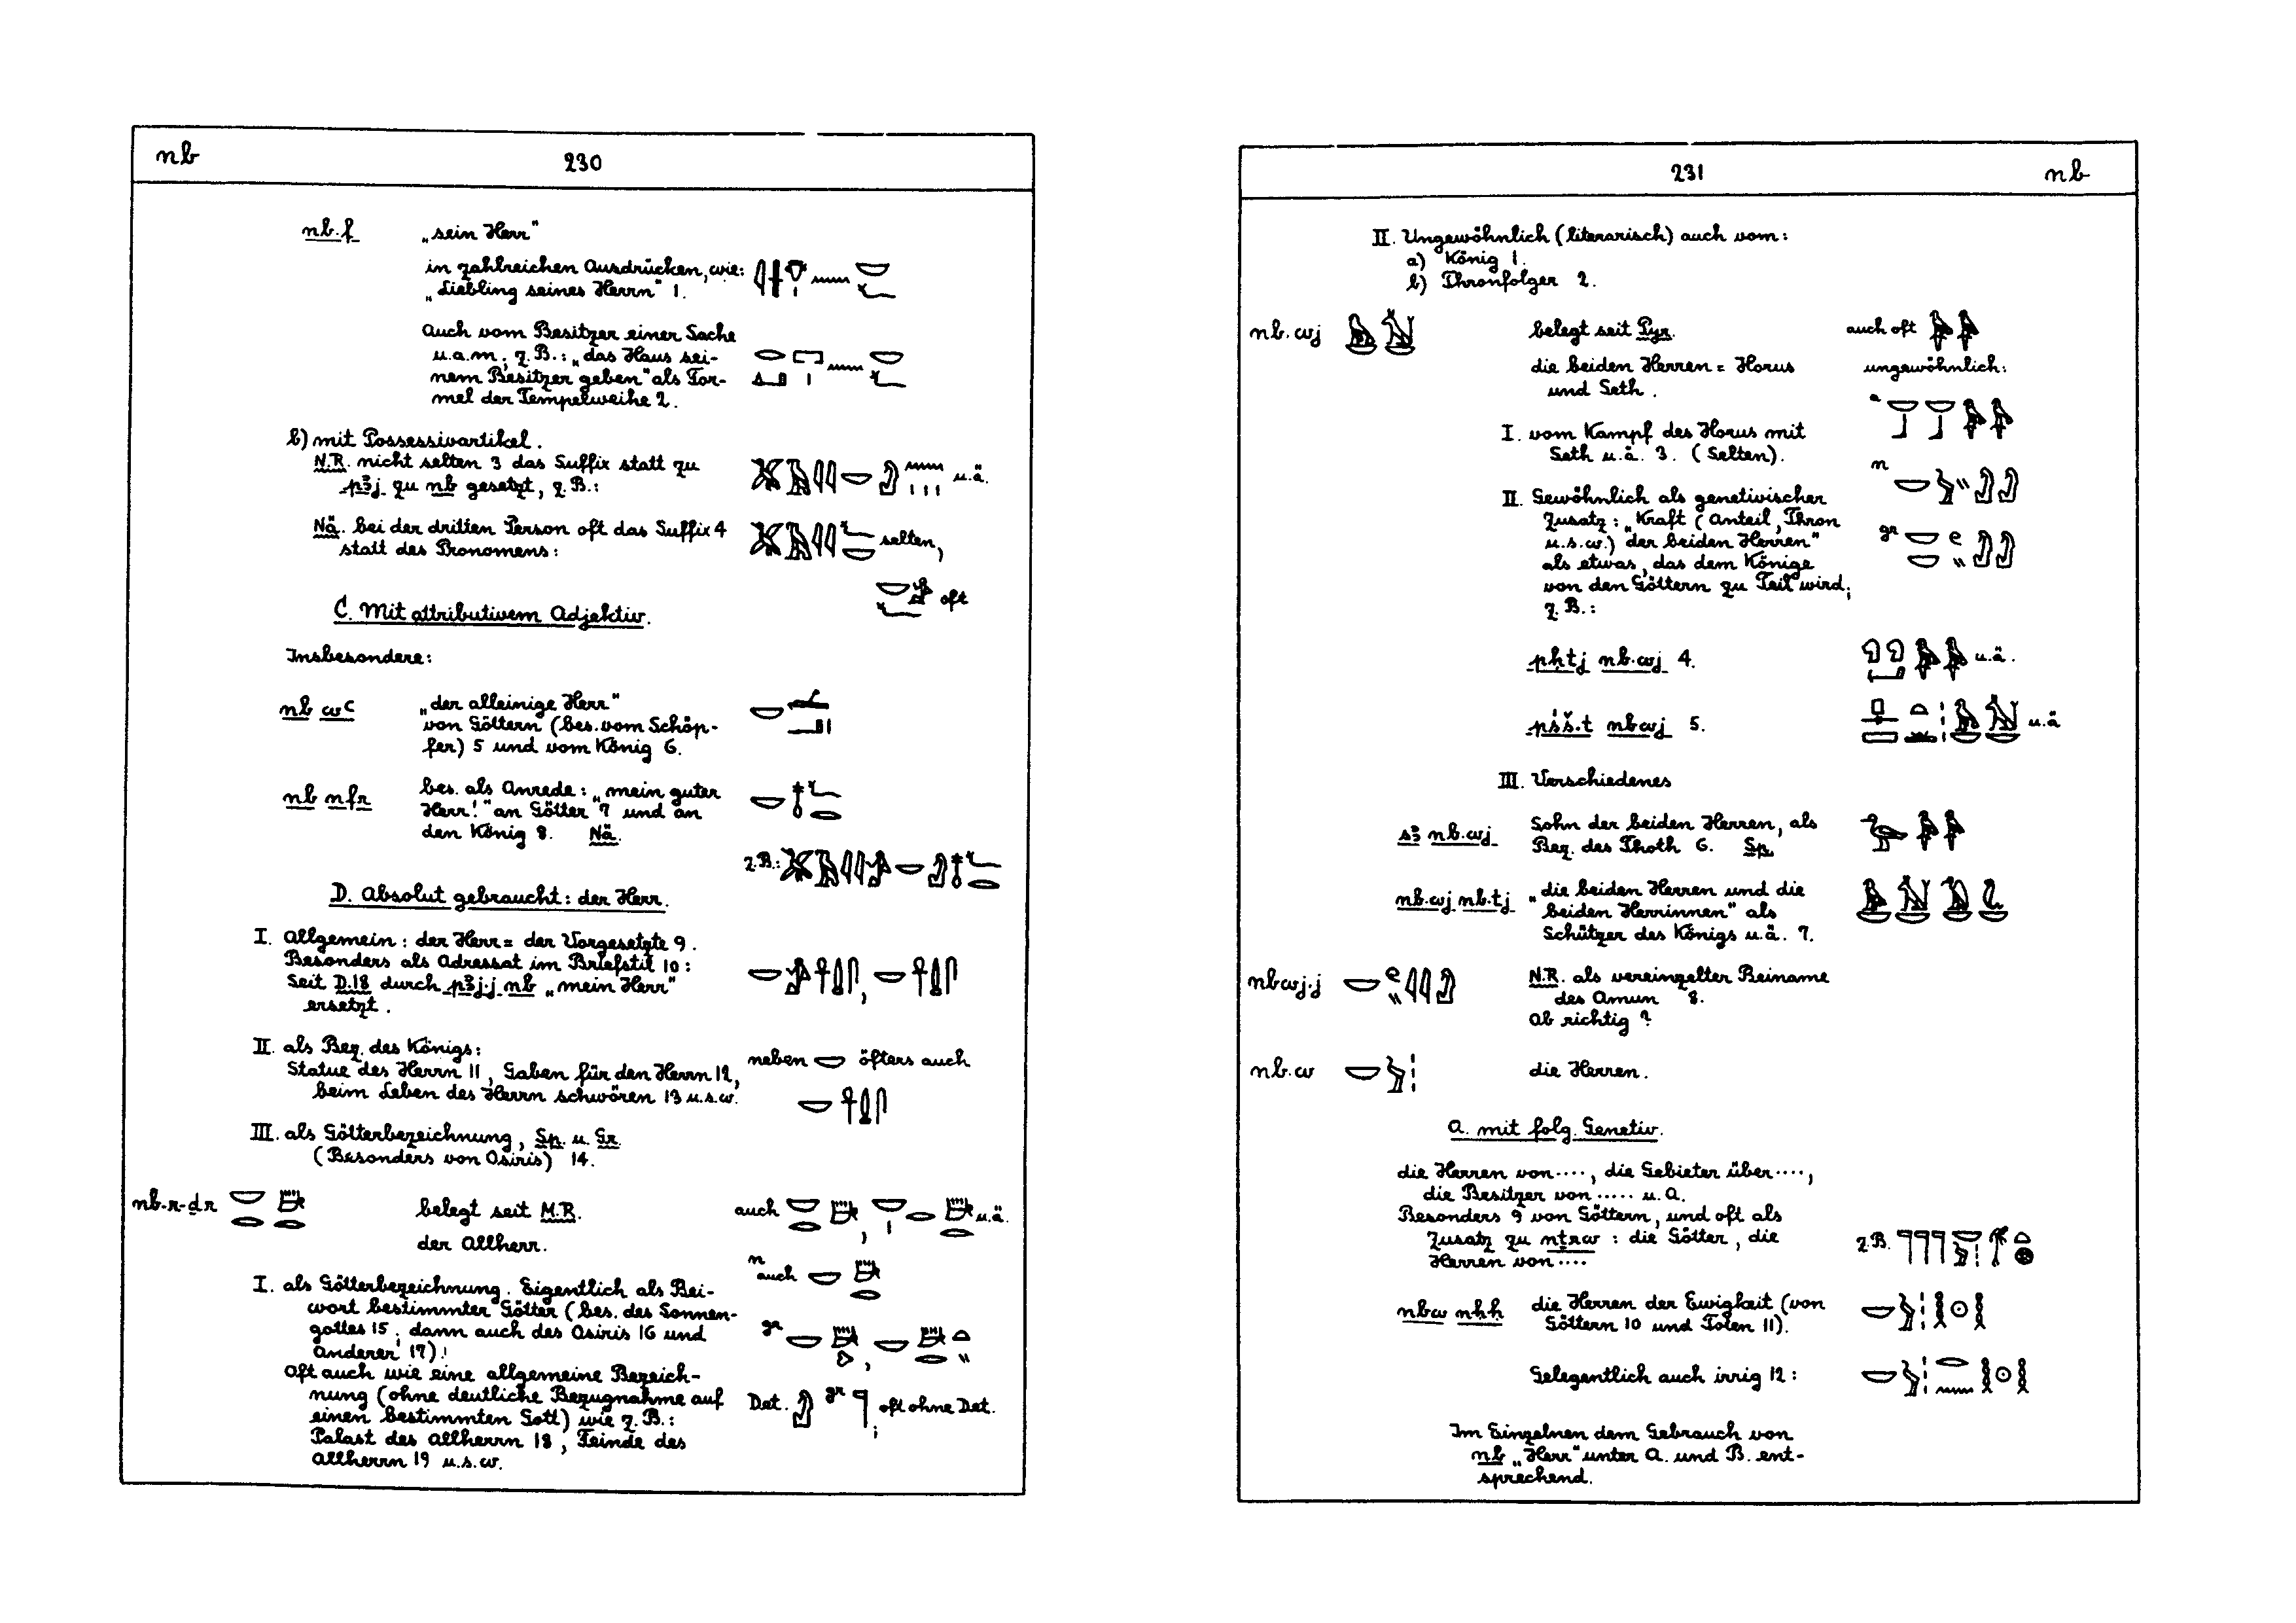 nb 230
nb.f „sein Herr"
in zahlreichen Ausdrücken, wie:
„Liebling seines Herrn" 1.
Auch vom Besitzer einer Sache
u.a.m., z.B.: „das Haus sei-
nem Besitzer geben" als For-
mel der Tempelweihe 2.
b) mit Possessivartikel.
N.R. nicht selten 3 das Suffix statt zu
pꜣj zu nb gesetzt, z.B.: u.ä.
Nä. bei der dritten Person oft das Suffix 4
statt des Pronomens: selten,
oft
C. Mit attributivem Adjektiv.
Insbesondere:
nb wꜥ „der alleinige Herr"
von Göttern (bes. vom Schöp-
fer) 5 und vom König 6.
nb nfr bes. als Anrede: „mein guter
Herr!" an Götter 7 und an
den König 8. Nä.
z.B.:
D. Absolut gebraucht: der Herr.
I. Allgemein: der Herr = der Vorgesetzte 9.
Besonders als Adressat im Briefstil 10:
Seit D.18 durch pꜣj.j nb „mein Herr"
ersetzt.
II. als Bez. des Königs:
neben öfters auch
Statue des Herrn 11, Gaben für den Herrn 12,
beim Leben des Herrn schwören 13 u.s.w.
III. als Götterbezeichnung, Sp. u. Gr.
(Besonders von Osiris) 14.
nb-r-ḏr belegt seit M.R. auch , u.ä.
der Allherr.
n auch
I. als Götterbezeichnung. Eigentlich als Bei-
wort bestimmter Götter (bes. des Sonnen-
gottes 15, dann auch des Osiris 16 und
Anderer 17).
gr ,
Oft auch wie eine allgemeine Bezeich-
nung (ohne deutliche Bezugnahme auf
einen bestimmten Gott) wie z.B.:
Det. gr ; oft ohne Det.
Palast des Allherrn 18, Feinde des
Allherrn 19 u.s.w.
231 nb
II. Ungewöhnlich (literarisch) auch vom:
a) König 1.
b) Thronfolger 2.
nb.wj belegt seit Pyr. auch oft
die beiden Herren = Horus
und Seth.
ungewöhnlich:
a
I. vom Kampf des Horus mit
Seth u.ä. 3. (Selten).
n
II. Gewöhnlich als genetivischer
Zusatz: „Kraft (Anteil, Thron
u.s.w.) der beiden Herren"
als etwas, das dem Könige
von den Göttern zu Teil wird;
z.B.:
gr
pḥtj nb.wj 4. u.ä.
pśš.t nbwj 5. u.ä
III. Verschiedenes
sꜣ nb.wj Sohn der beiden Herren, als
Bez. des Thoth 6. Sp.
nb.wj nb.tj „die beiden Herren und die
beiden Herrinnen" als
Schützer des Königs u.ä. 7.
nbwj.j N.R. als vereinzelter Beiname
des Amun 8.
Ob richtig?
nb.w die Herren.
A. mit folg. Genetiv.
die Herren von ····, die Gebieter über ····,
die Besitzer von ····· u.A.
Besonders 9 von Göttern, und oft als
Zusatz zu nṯrw: die Götter, die
Herren von ····
z.B.
nbw nḥḥ die Herren der Ewigkeit (von
Göttern 10 und Toten 11).
Gelegentlich auch irrig 12:
Im Einzelnen dem Gebrauch von
nb „Herr" unter A. und B. ent-
sprechend.